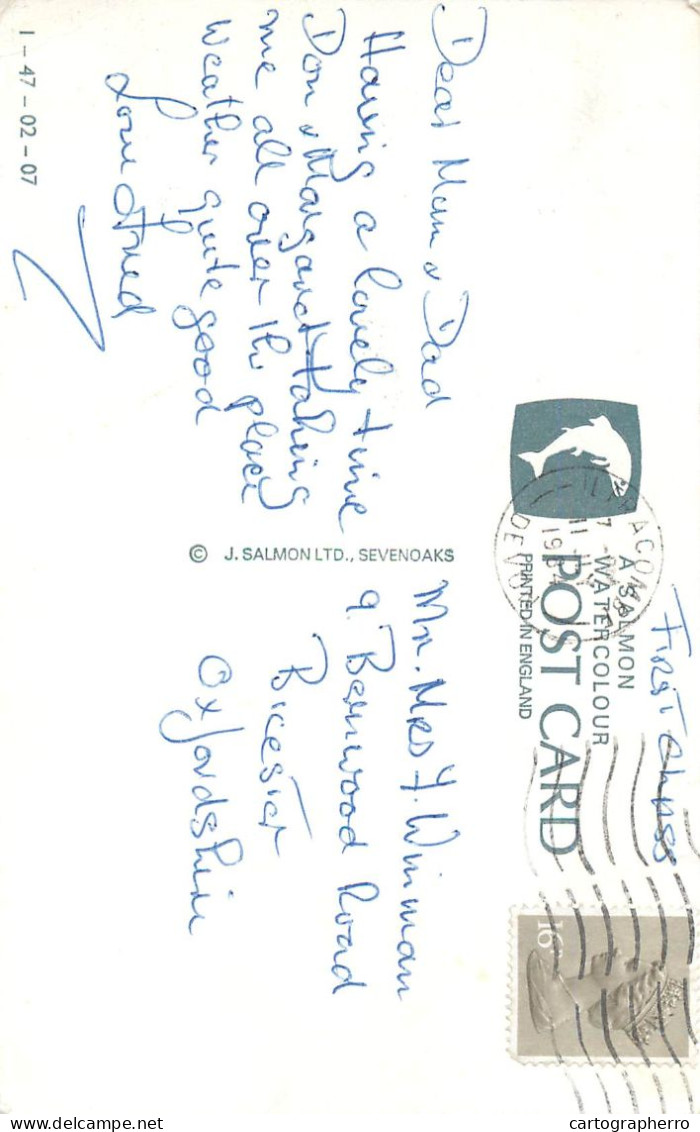 Dear Mum & Dad
Having a lovely time
Don & Margaret taking
me all over the place
Weather quite good
Love
1-47-02-07
© J. SALMON LTD., SEVENOAKS
A SALMON
WATERCOLOUR
POST CARD
PRINTED IN ENGLAND
ILFRACOMBE
1984
DEVON
FIRST CLASS
16
Mr. Mrs Y. Winman
9. Bernwood Road
Bicester
Oxfordshire
cartographerro